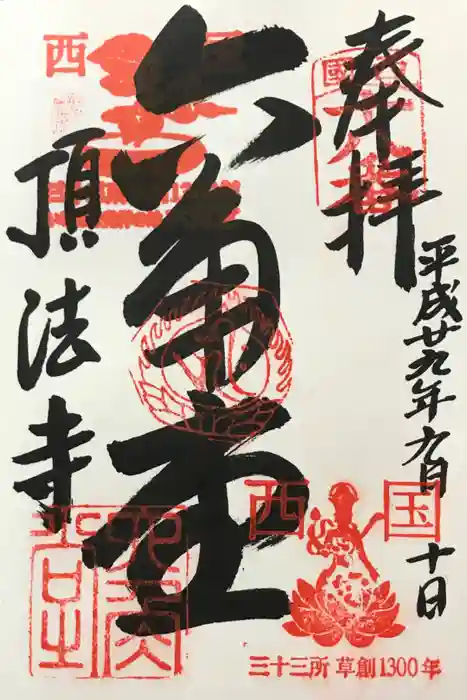 奉拝
平成廿九年九月
十日
六角堂
頂法寺
西国
西国
三十三所 草創1300年